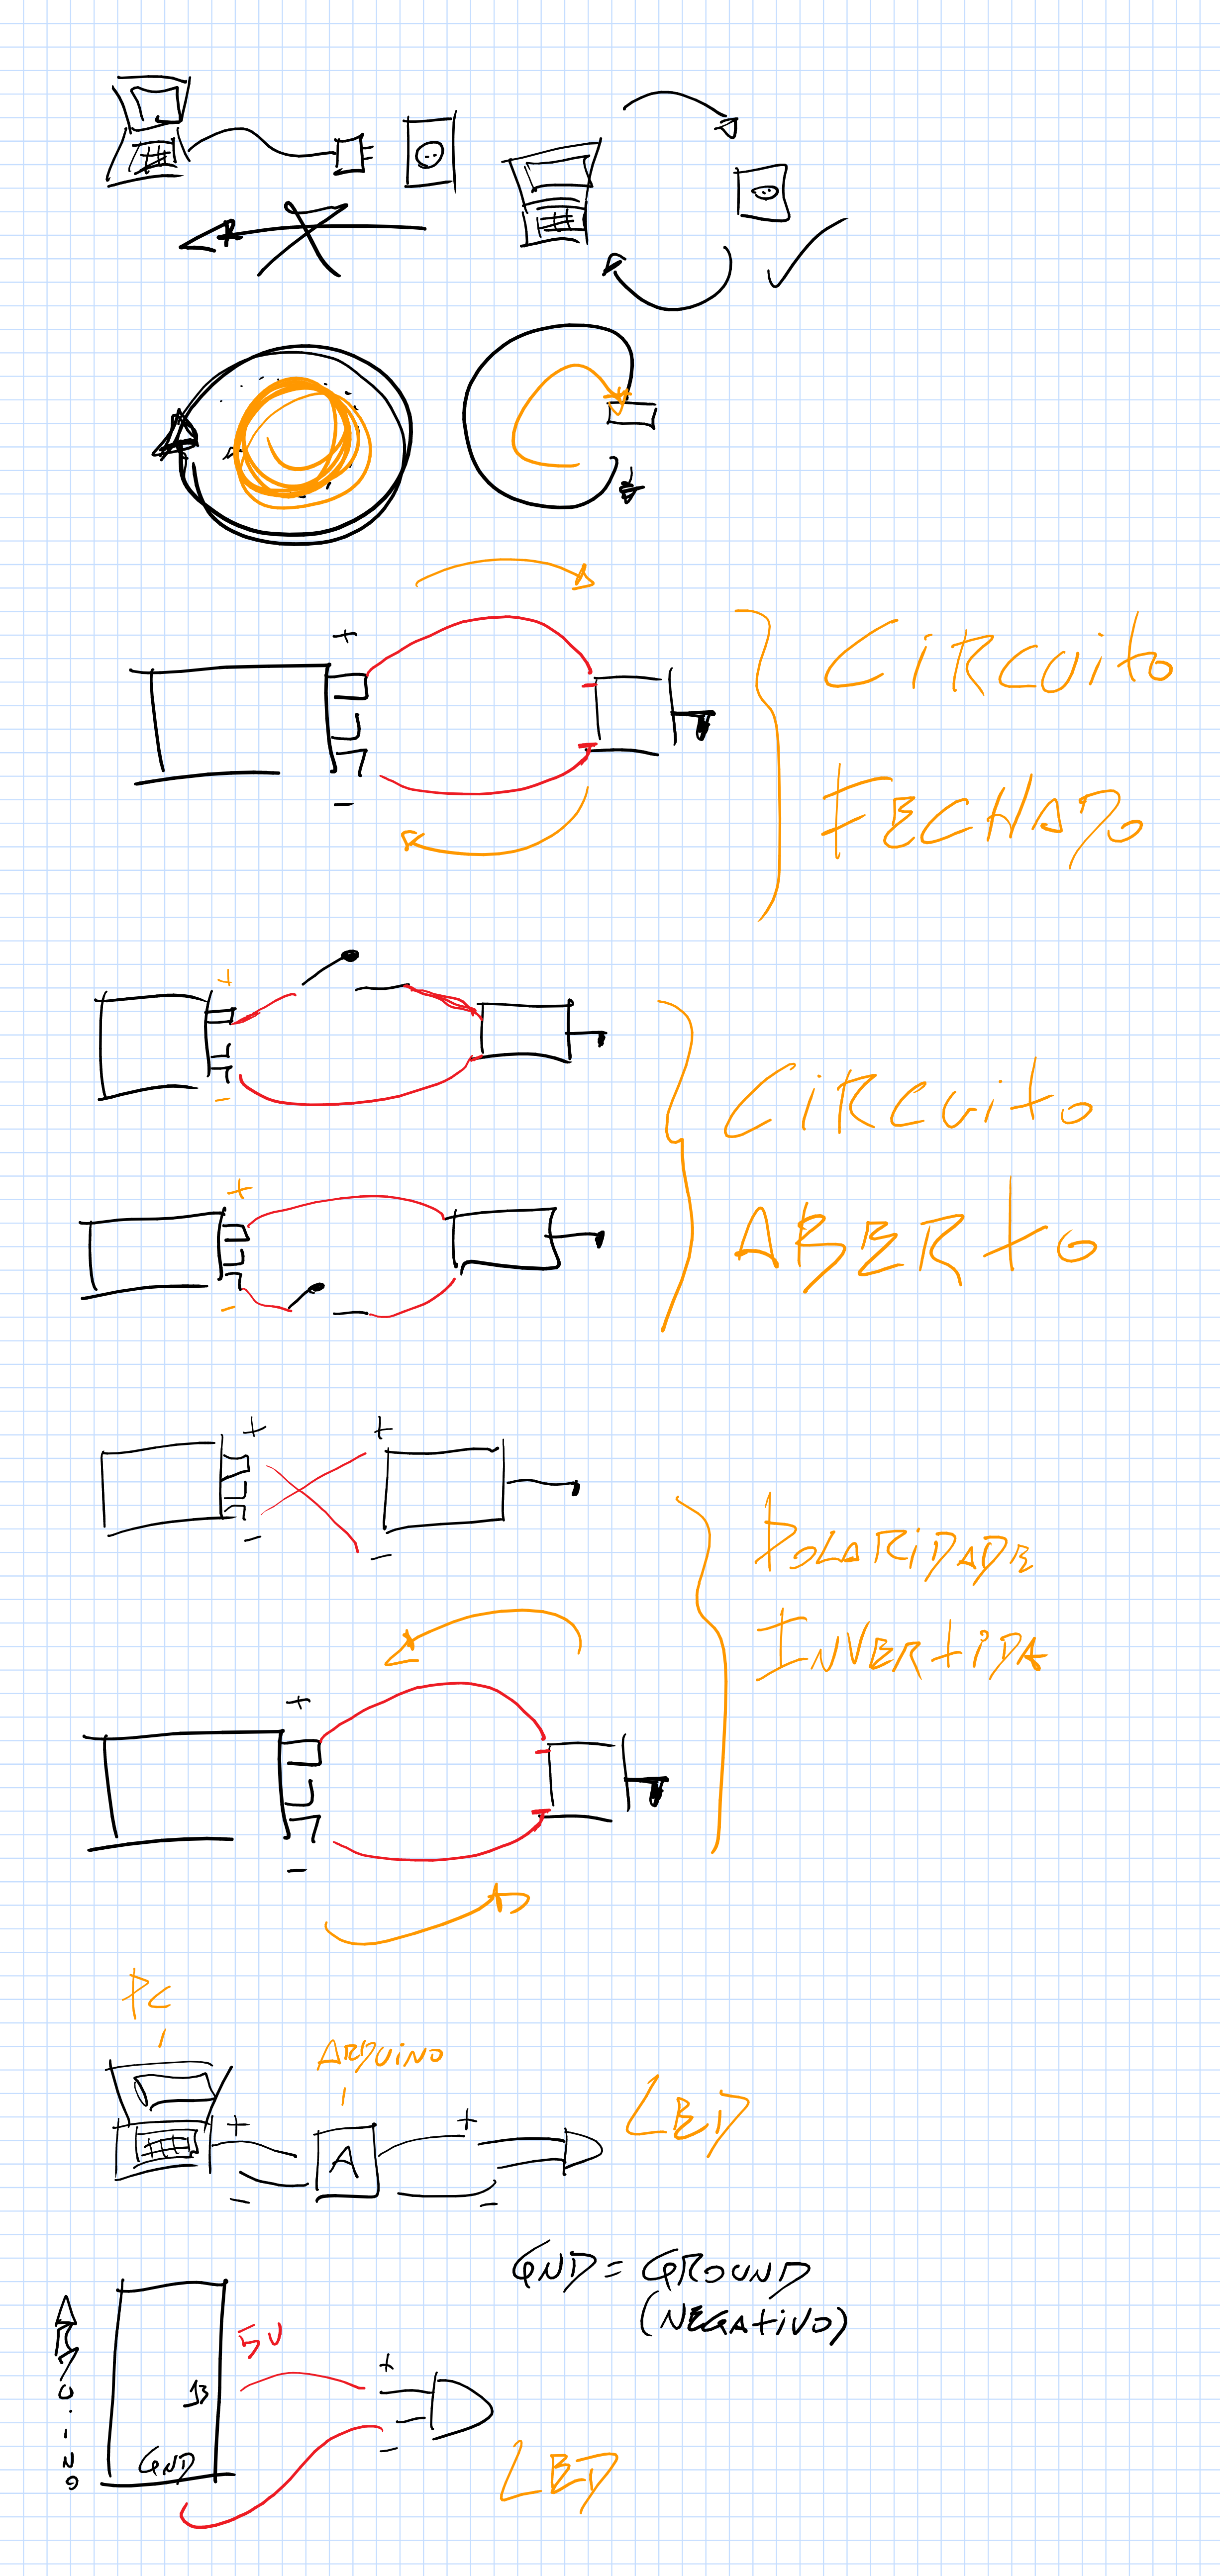 +
CiRCUito
FECHADO
-
+
-
CiRCUito
ABERto
+
-
+ +
- -
POLARiDADE
INVERtiDA
+
-
PC
ARDUiNO
LED
+ +
A
- -
GND = GROUND
(NEGAtiVO)
ARDUiNO
5V
+
13
-
GND
LED